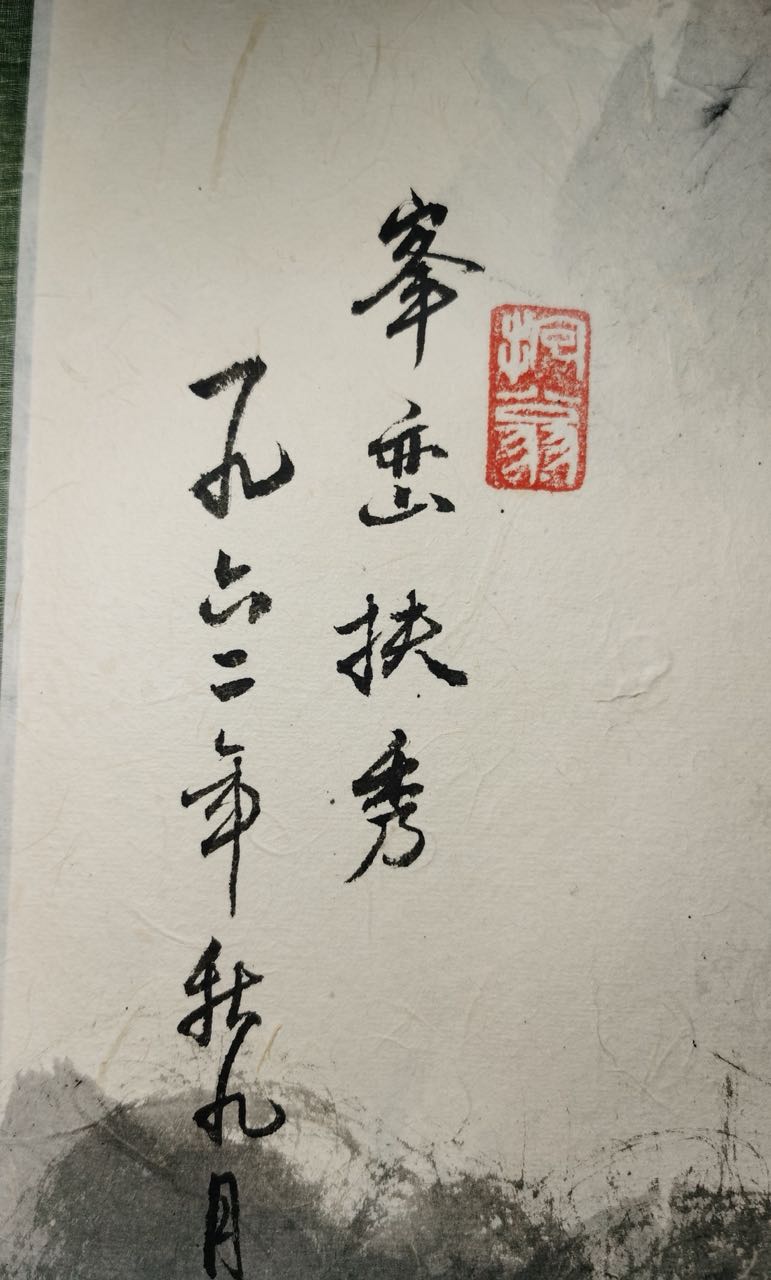 峯峦扶秀
一九六二年秋九月